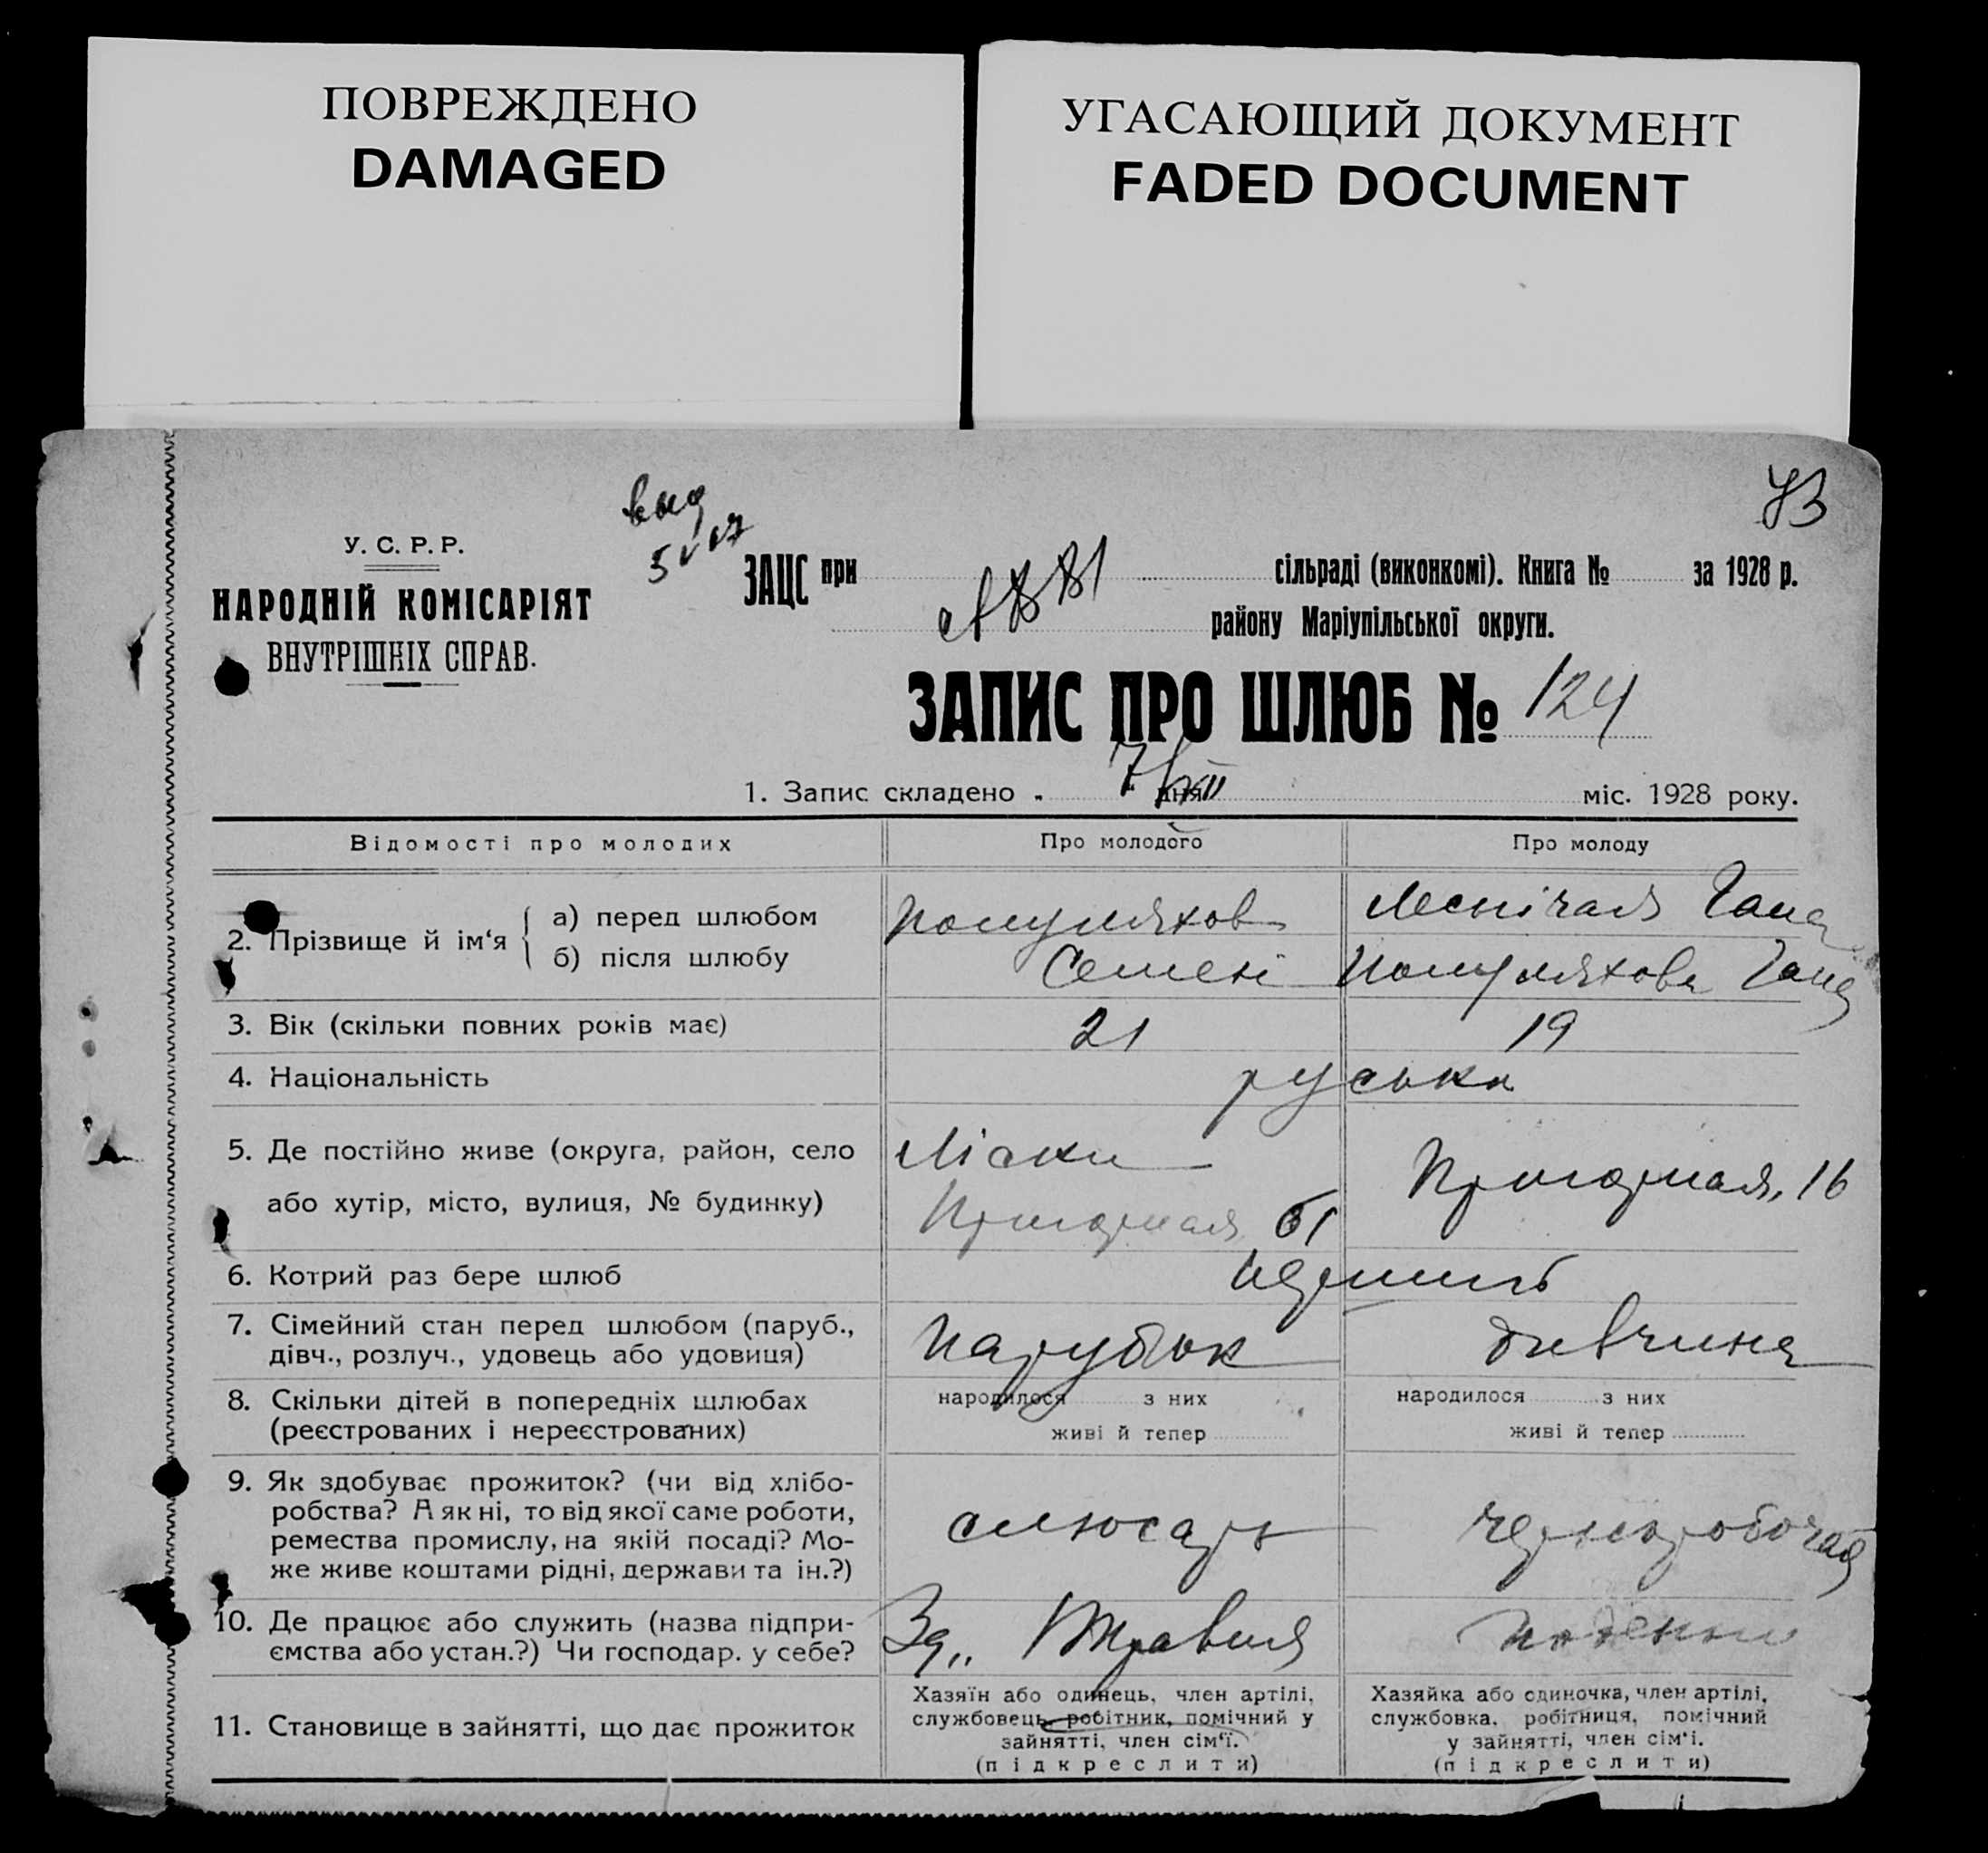 ПОВРЕЖДЕНО
DAMAGED
УГАСАЮЩИЙ ДОКУМЕНТ
FADED DOCUMENT
73
У. С. Р. Р.
НАРОДНІЙ КОМІСАРІЯТ
ВНУТРІШНІХ СПРАВ.
ЗАЦС при сільраді (виконкомі). Книга № за 1928 р.
району Маріупільської округи.
ЗАПИС ПРО ШЛЮБ № 124
1. Запис складено „ 7/XII дня міс. 1928 року.
Відомості про молодих Про молодого Про молоду
2. Прізвище й ім‘я { а) перед шлюбом Полуляхов Леснічая Гана
б) після шлюбу Семен Полуляхова Гана
3. Вік (скільки повних років має) 21 19
4. Національність руська
5. Де постійно живе (округа, район, село Ліски
або хутір, місто, вулиця, № будинку) 16
6. Котрий раз бере шлюб
7. Сімейний стан перед шлюбом (паруб., парубок дивчина
дівч., розлуч., удовець або удовиця)
8. Скільки дітей в попередніх шлюбах народилося з них народилося з них
(реєстрованих і нереєстрованих) живі й тепер живі й тепер
9. Як здобуває прожиток? (чи від хлібо-
робства? А як ні, то від якої саме роботи, слюсарь черноробочая
ремества промислу, на якій посаді? Мо-
же живе коштами рідні, держави та ін.?)
10. Де працює або служить (назва підпри-
ємства або устан.?) Чи господар. у себе?
11. Становище в зайнятті, що дає прожиток
Хазяїн або одинець, член артілі,
службовець, робітник, помічний у
зайнятті, член сім‘ї.
(підкреслити)
Хазяйка або одиночка, член артілі,
службовка, робітниця, помічний
у зайнятті, член сім‘і.
(підкреслити)